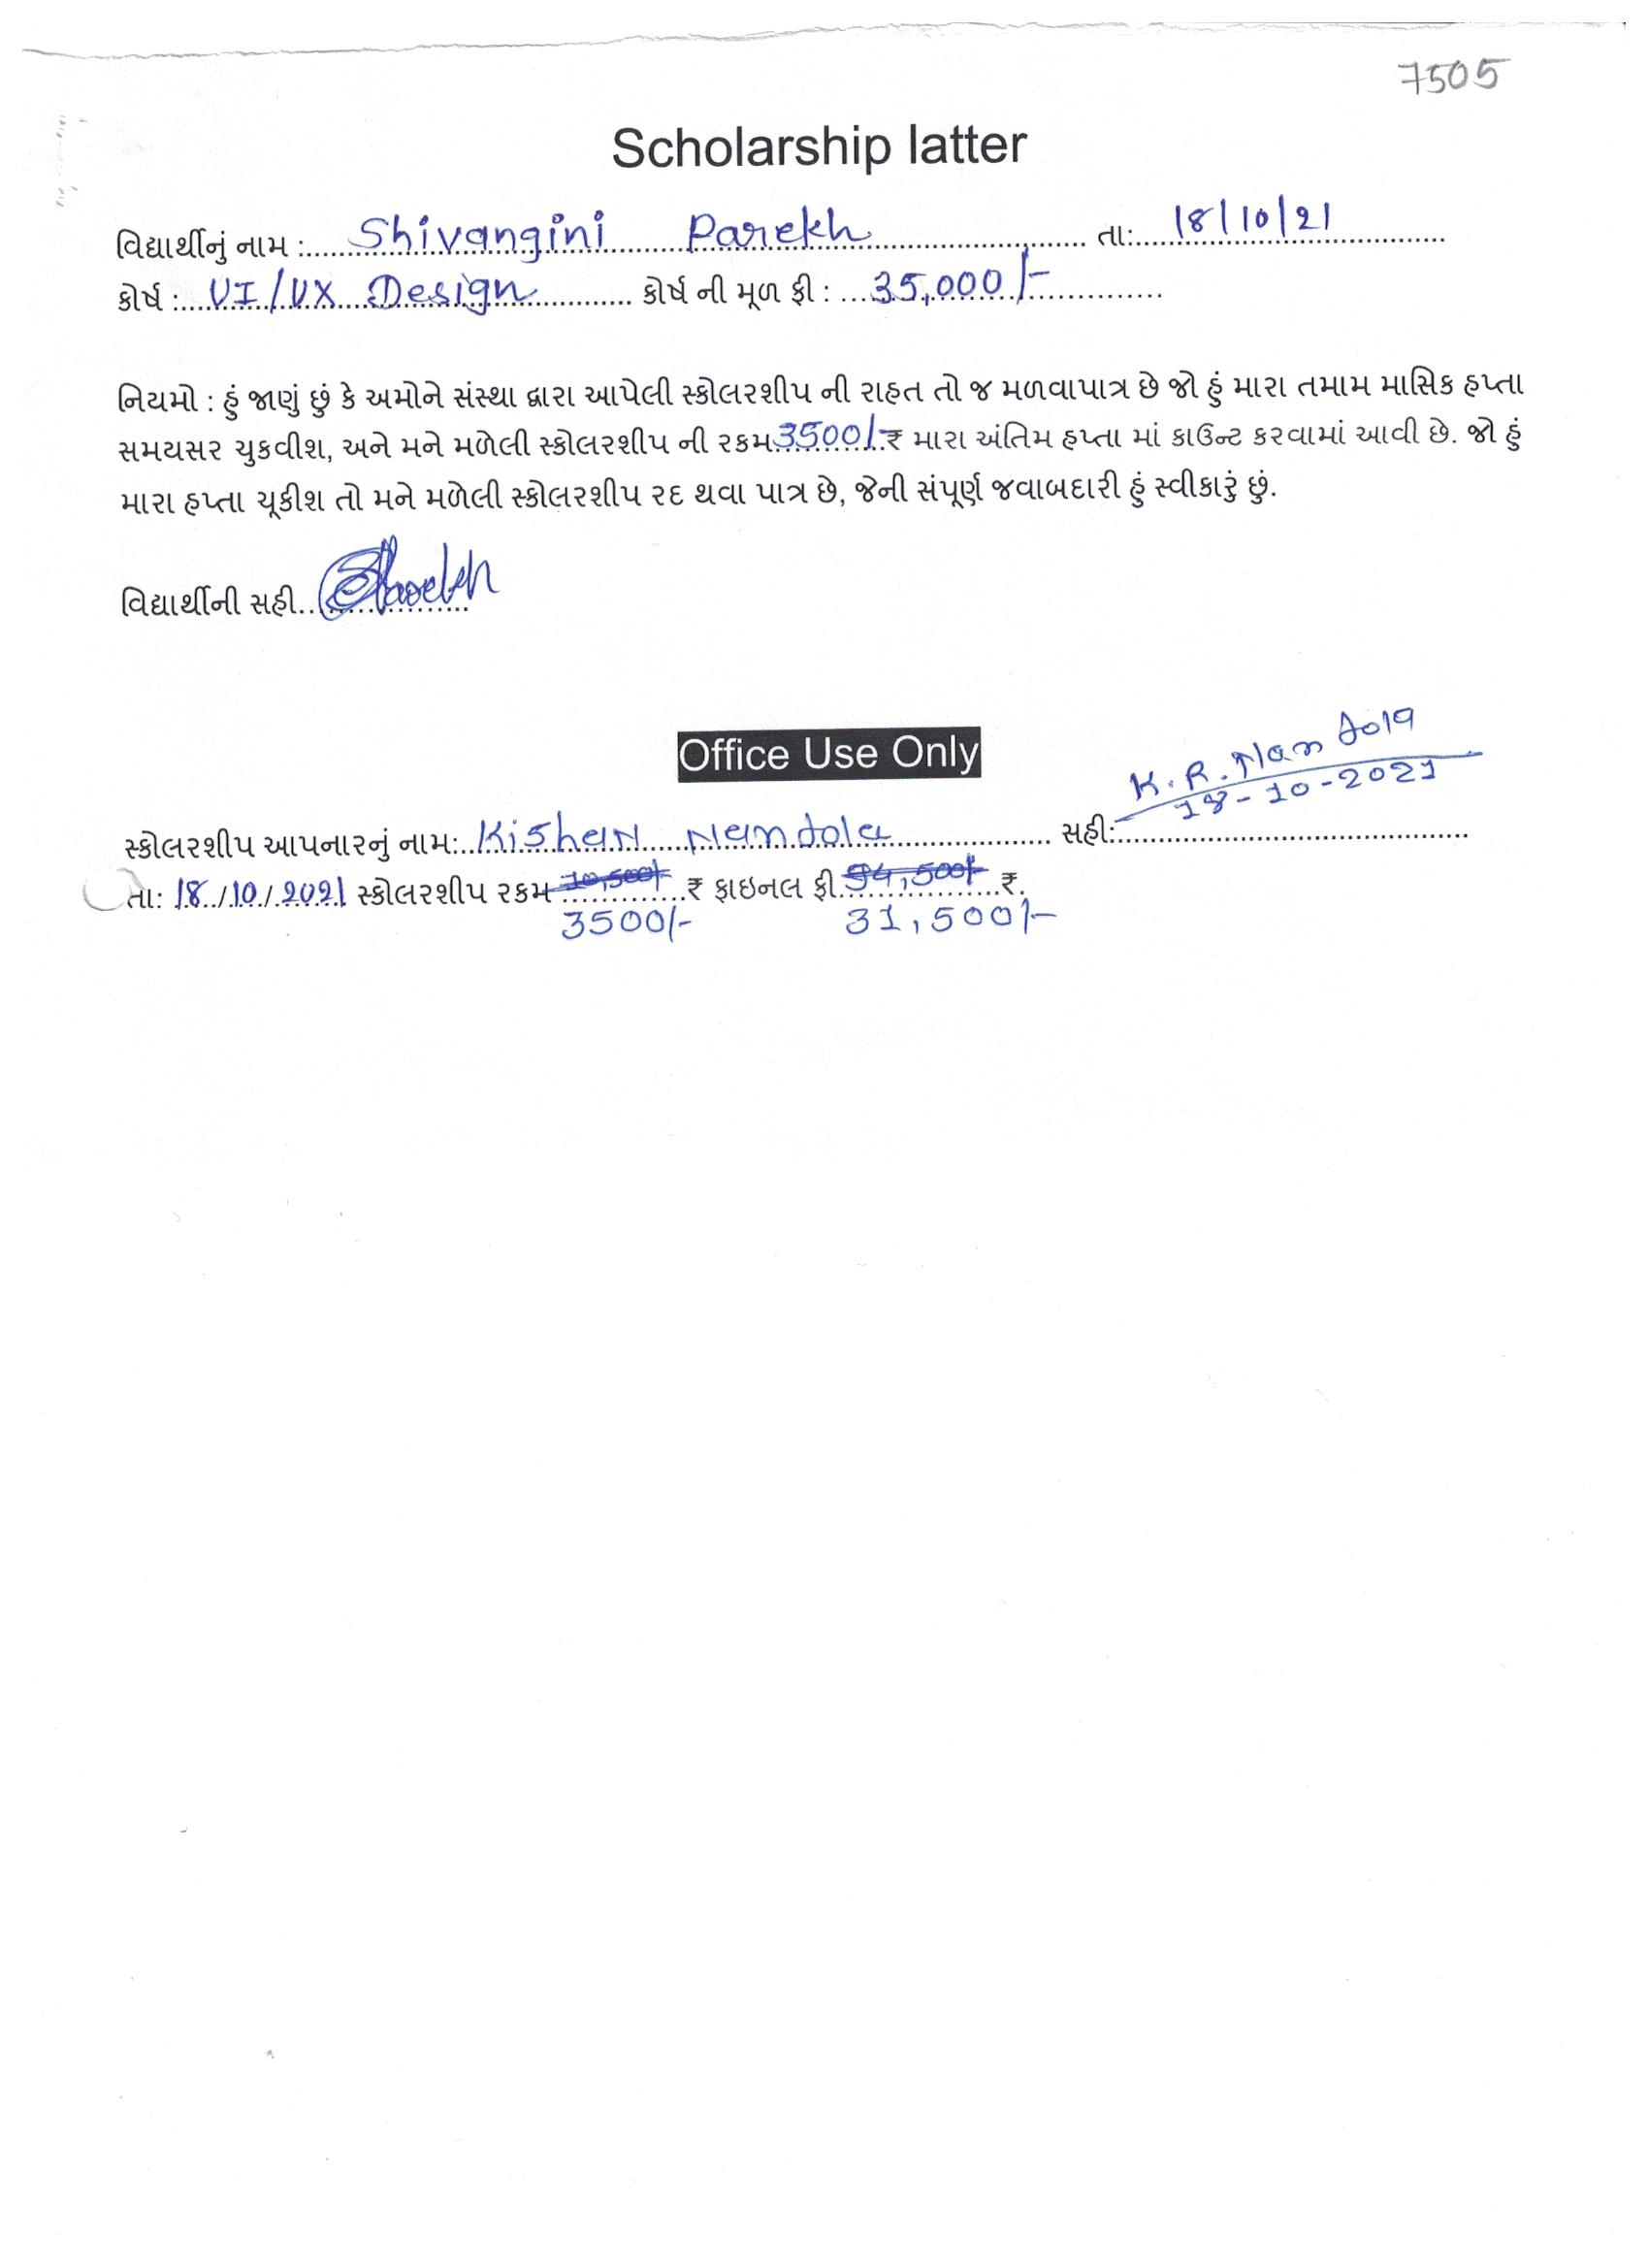 7505
Scholarship latter
વિદ્યાર્થીનું નામ : Shivangini Parekh તા: 18/10/21
કોર્ષ : UI/UX Design કોર્ષ ની મૂળ ફી : 35,000/-
નિયમો : હું જાણું છું કે અમોને સંસ્થા દ્વારા આપેલી સ્કોલરશીપ ની રાહત તો જ મળવાપાત્ર છે જો હું મારા તમામ માસિક હપ્તા
સમયસર ચુકવીશ, અને મને મળેલી સ્કોલરશીપ ની રકમ 3500/- ₹ મારા અંતિમ હપ્તા માં કાઉન્ટ કરવામાં આવી છે. જો હું
મારા હપ્તા ચૂકીશ તો મને મળેલી સ્કોલરશીપ રદ થવા પાત્ર છે, જેની સંપૂર્ણ જવાબદારી હું સ્વીકારું છું.
વિદ્યાર્થીની સહી
Office Use Only
K. R. Nandola
18-10-2021
સ્કોલરશીપ આપનારનું નામ: Kishan Nandola સહી:
તા: 18/10/2021 સ્કોલરશીપ રકમ ₹ ફાઇનલ ફી ₹.
3500/- 31,500/-